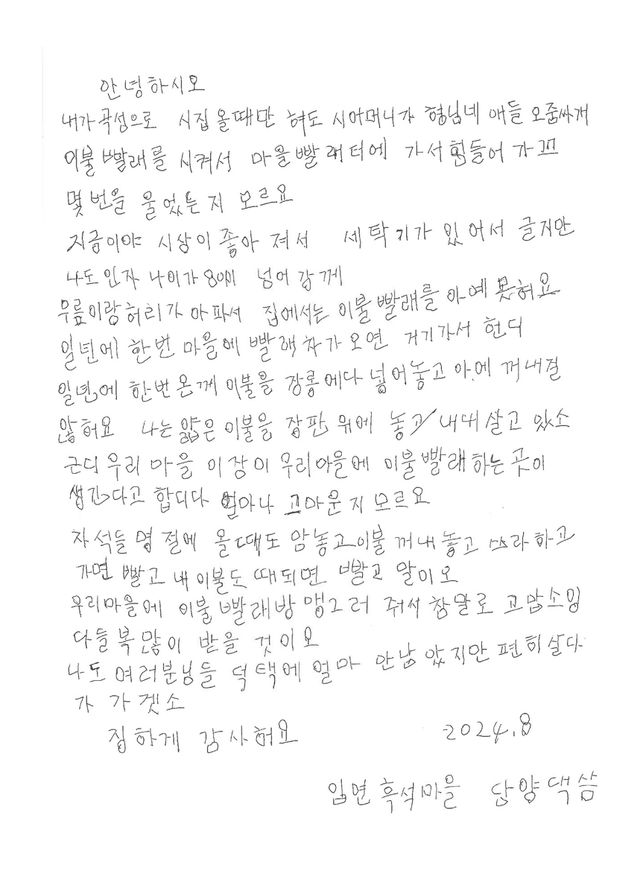 안녕하시오
내가 곡성으로 시집 올때만 혀도 시어머니가 형님네 애들 오줌싸개
이불 빨래를 시켜서 마을 빨래터에 가서 힘들어 가꼬
몇번을 울었는지 모르요
지금이야 시상이 좋아 져서 세탁기가 있어서 글지만
나도 인자 나이가 80이 넘어 감께
무릎이랑 허리가 아파서 집에서는 이불 빨래를 아예 못혀요
일년에 한번 마을에 빨래 차가 오면 거기가서 헌디
일년에 한번 온께 이불을 장롱에다 넣어놓고 아에 꺼내질
않혀요 나는 얇은 이불을 장판 위에 놓고 내대 살고 있소
근디 우리 마을 이장이 우리마을에 이불 빨래 하는 곳이
생긴다고 합디다 얼마나 고마운지 모르요
자석들 명절에 올때도 암놓고 이불 꺼내 놓고 쓰라 하고
가면 빨고 내 이불도 때되면 빨고 말이오
우리마을에 이불 빨래방 맹그러 줘서 참말로 고맙소잉
다들 복 많이 받을 것이오
나도 여러분님들 덕택에 얼마 안남았지만 편히 살다
가 가겟소
집하게 감사혀요 2024.8
입면 흑석마을 단양댁 씀